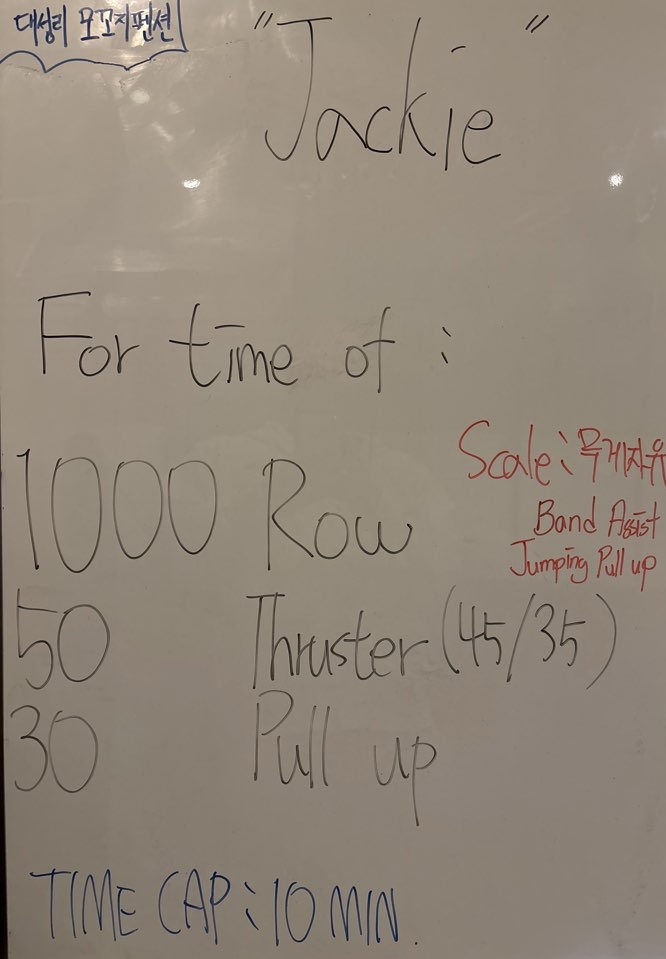 대성리 모꼬지펜션
"Jackie"
For time of :
Scale : 무게자유
1000 Row
Band Assist
Jumping Pull up
50 Thruster (45/35)
30 Pull up
TIME CAP : 10 MIN.